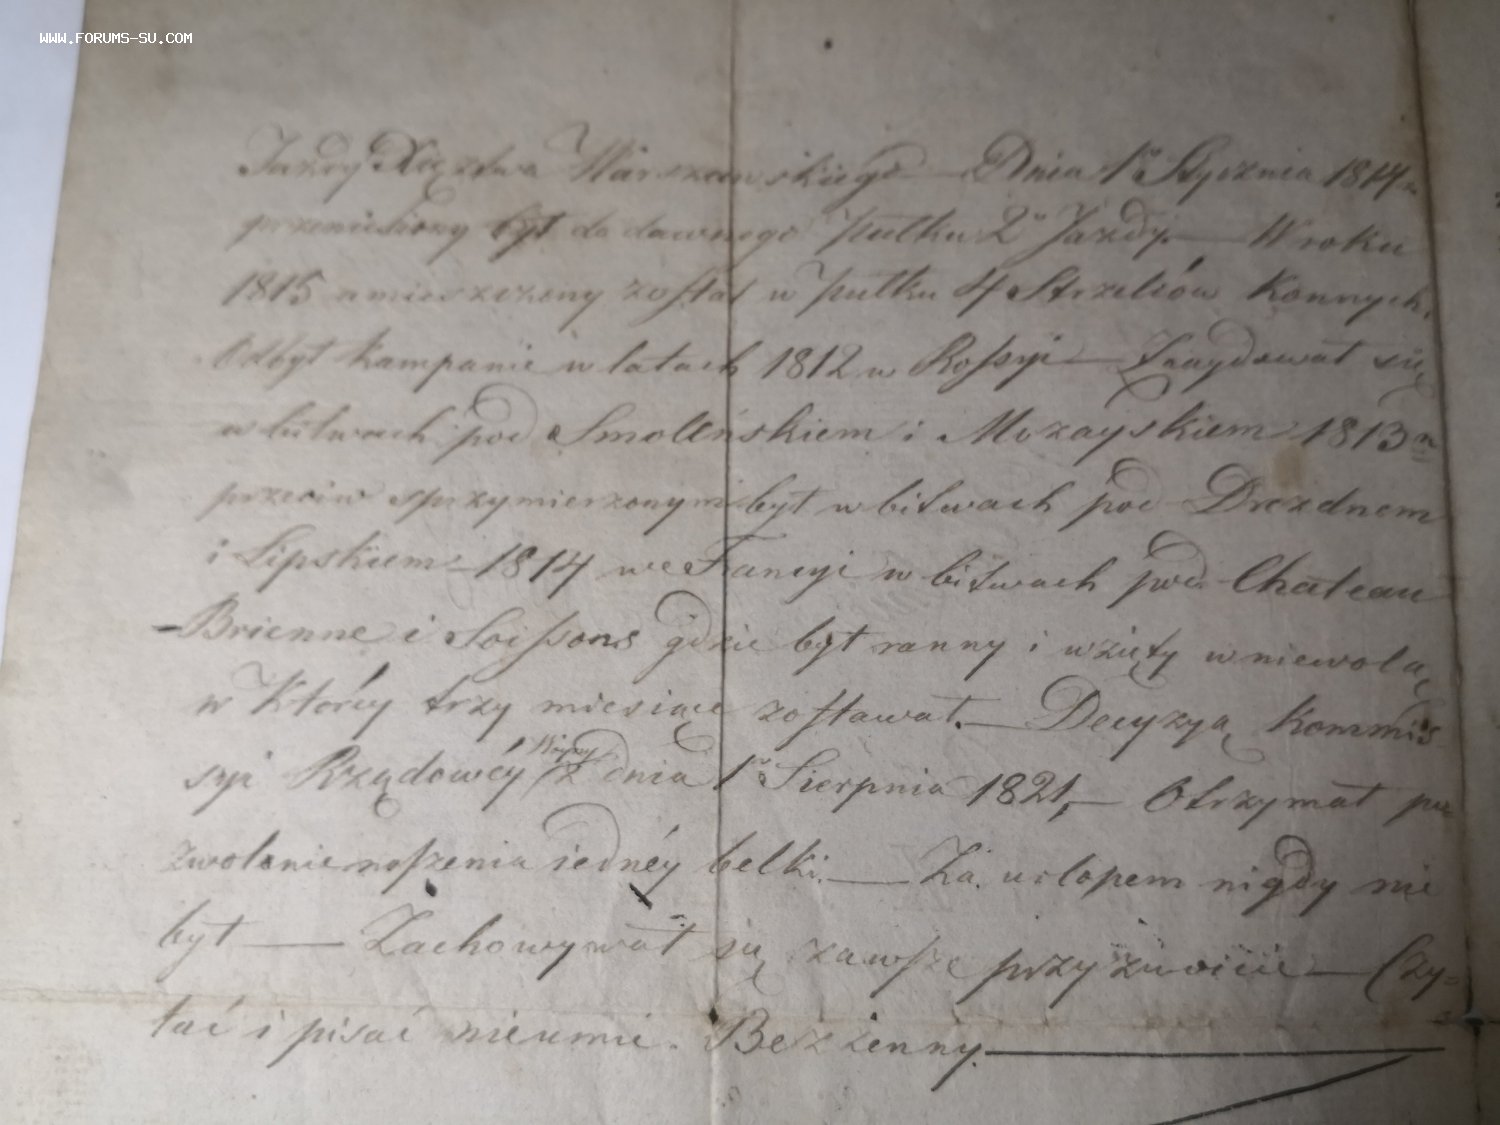 WWW.FORUMS-SU.COM
Jazdy Xięztwa Warszawskiego — Dnia 1º Stycznia 1814 r.
przeniesiony był do dawnego pułku 2º Jazdy. — W roku
1815 umieszczony zoſtał w pułku 4 Strzelców Konnych.
Odbył kampanie w latach 1812 w Roſsyi — Znaydował się
w bitwach pod Smoleńskiem i Mozayskiem 1813 r.
przeciw sprzymierzonym był w bitwach pod Dreznem
i Lipskiem — 1814 we Francyi w bitwach pod Chateau
-Brienne i Soiſsons gdzie był ranny i wzięty w niewolą
w któréy trzy miesiące zoſtawał. — Decyzyą Kommis
syi Rządowéy Woyny z dnia 1º Sierpnia 1821, — Otrzymał po
zwolenie noſzenia iednéy belki. — Za urlopem nigdy nie
był — Zachowywał się zawſze przyzwoicie — Czy-
tać i pisać nieumie. Bezżenny. —